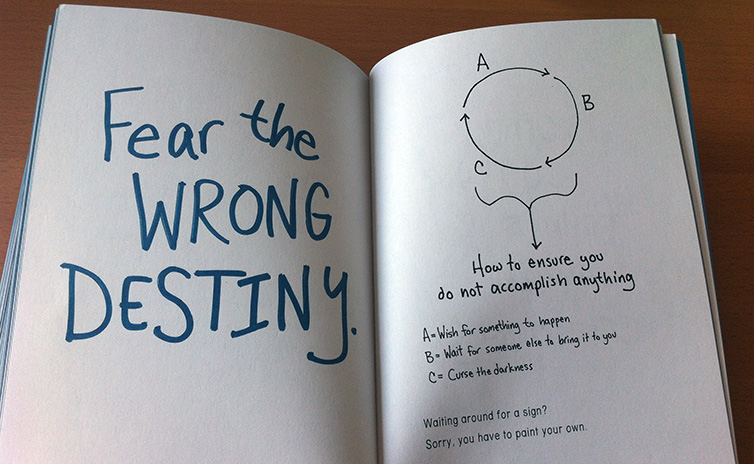 Fear the
WRONG
DESTINY.
A
B
C
How to ensure you
do not accomplish anything
A = Wish for something to happen
B = Wait for someone else to bring it to you
C = Curse the darkness
Waiting around for a sign?
Sorry, you have to paint your own.